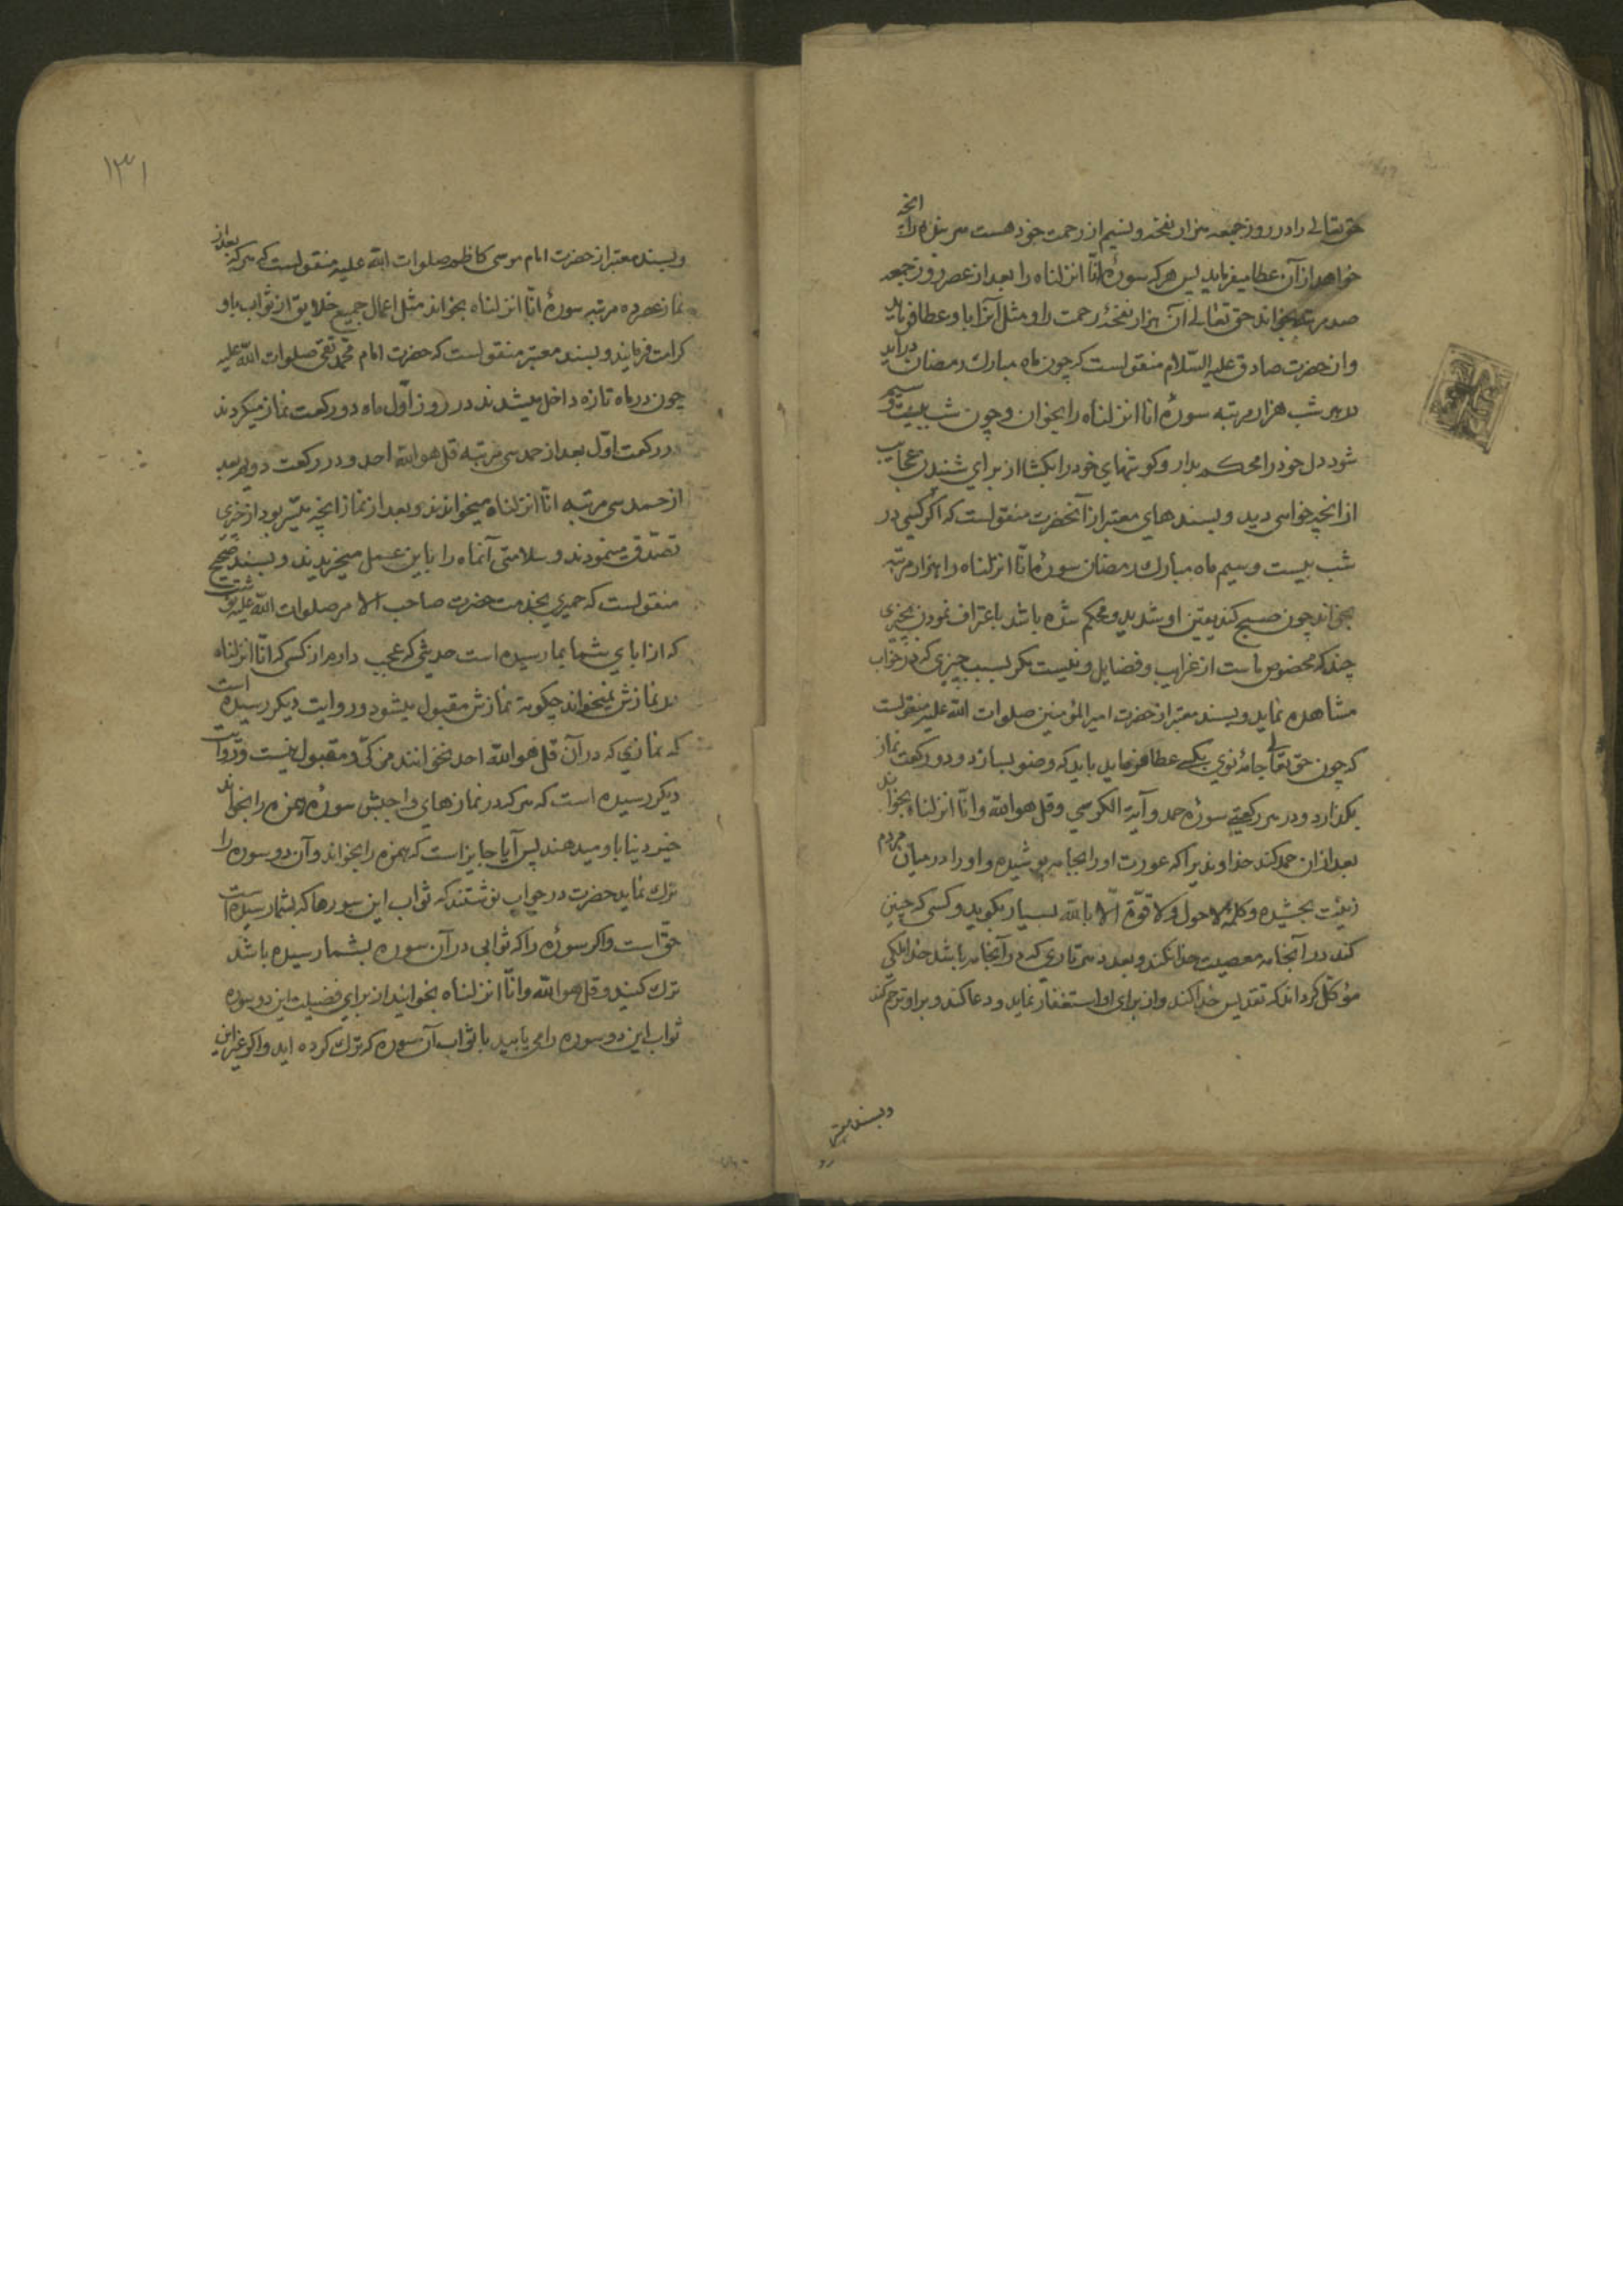 حق تعالی را در روز جمعه هزار نفخه و نسیم از رحمت خود هست هر بنده را آنچه
خواهد از آن عطا میفرماید پس هرکه سورهٔ انّا انزلناه را بعد از عصر روز جمعه
صد مرتبه بخواند حق تعالی آن هزار نفخهٔ رحمت را و مثل آنرا باو عطا فرماید
و از حضرت صادق علیه السّلام منقولست که چون ماه مبارک رمضان درآید
در هر شب هزار مرتبه سورهٔ انا انزلناه را بخوان و چون شب بیست و سیم
شود دل خود را محکم بدار و گوشهای خود را بگشا از برای شنیدن عجایب
از آنچه خواهی دید و بسندهای معتبر از آنحضرت منقولست که اگر کسی در
شب بیست و سیم ماه مبارک رمضان سورهٔ انّا انزلناه را هزار مرتبه
بخواند چون صبح کند یقین او شدید و محکم شده باشد باعتراف نمودن بچیزی
چند که مخصوص ماست از غرایب و فضایل و نیست مگر بسبب چیزی که در خواب
مشاهده نماید و بسند معتبر از حضرت امیر المؤمنین صلوات الله علیه منقولست
که چون حق تعالی جامهٔ نوی بیکی عطا فرماید باید که وضو بسازد و دو رکعت نماز
بگذارد و در هر رکعتی سورهٔ حمد و آیة الکرسی و قل هو الله و انّا انزلناه بخواند
بعد از ان حمد کند خداوندیرا که عورت او را بجامه پوشیده و او را در میان مردم
زینت بخشیده و کلمهٔ لا حول و لا قوّة الّا بالله بسیار بگوید و کسی که چنین
کند در آنجامه معصیت خدا نکند و بعدد هر تاری که در آنجامه باشد خدا ملکی
مؤکّل گرداند که تقدیس خدا کند و از برای او استغفار نماید و دعا کند و بر او ترحم کند
و بسند معتبر
۱۳۱
و بسند معتبر از حضرت امام موسی کاظم صلوات الله علیه منقولست که هرکه بعد از
نماز عصر ده مرتبه سورهٔ انّا انزلناه بخواند مثل اعمال جمیع خلایق از ثواب باو
کرامت فرمایند و بسند معتبر منقولست که حضرت امام محمّد تقی صلوات الله علیه
چون در ماه تازه داخل میشدند در روز اوّل ماه دو رکعت نماز میکردند
در رکعت اوّل بعد از حمد سی مرتبه قل هو الله احد و در رکعت دویم بعد
از حمد سی مرتبه انّا انزلناه میخواندند و بعد از نماز آنچه میّسر بود از چیزی
تصدّق مینمودند و سلامتی آنماه را باین عمل میخریدند و بسند صحیح
منقولست که حمیری بخدمت حضرت صاحب الامر صلوات الله علیه نوشت
که از ابای شما بما رسیده است حدیثی که عجب دارم از کسی که انّا انزلناه
در نمازش نمیخواند چگونه نمازش مقبول میشود و روایت دیگر رسیده است
که نمازی که در آن قل هو الله احد نخوانند مزکّی و مقبول نیست و در روایت
دیگر رسیده است که هرکه در نمازهای واجبش سورهٔ همزه را بخواند
خیر دنیا باو میدهند پس آیا جایز است که همزه را بخواند و آن دو سوره را
ترک نماید حضرت در جواب نوشتند که ثواب این سورها که بشما رسیده است
حقّ است و اگر سورهٔ را که ثوابی در آن سوره بشما رسیده باشد
ترک کنید و قل هو الله و انّا انزلناه بخوانید از برای فضیلت این دو سوره
ثواب این دو سوره را می یابید با ثواب آن سوره که ترک کرده اید و اگر غیر این